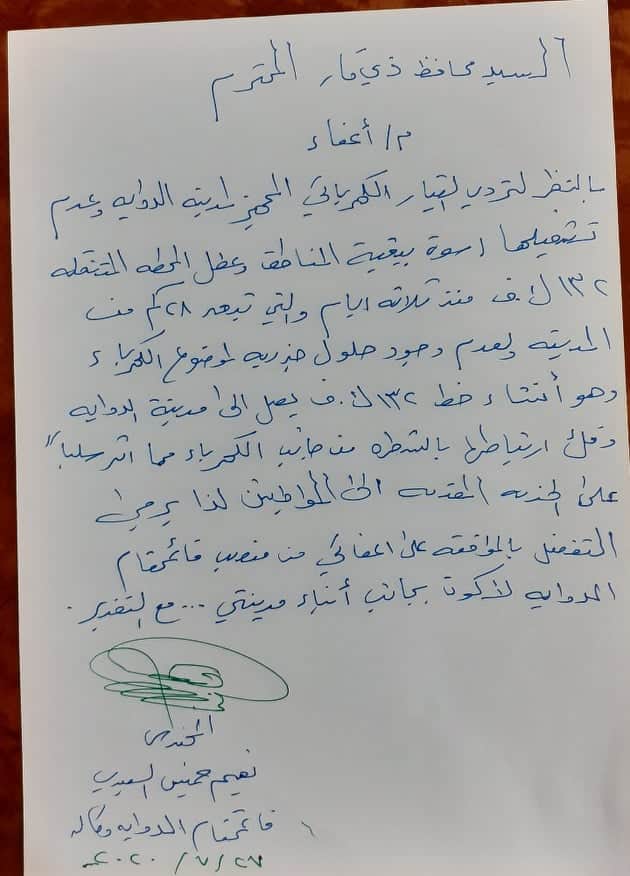 السيد محافظ ذي قار المحترم
م/ أعفاء
بالنظر لتردي التيار الكهربائي المجهز لمدينة الدوايه وعدم
تشغيلها اسوة ببقية المناطق وعطل المحطه المتنقله
١٣٢ ك.ف منذ ثلاثه ايام والتي تبعد ٢٨ كم من
المدينه ولعدم وجود حلول جذريه لموضوع الكهرباء
وهو أنشاء خط ١٣٢ ك.ف يصل الى مدينة الدوايه
وفك ارتباطها بالشطره من جانب الكهرباء مما اثر سلباً
على الخدمه المقدمه الى المواطنين لذا يرجى
التفضل بالموافقه على اعفائي من منصب قائممقام
الدوايه لأكون بجانب أبناء مدينتي ... مع التقدير .
المهندس
نعيم خميس السعيدي
قائممقام الدوايه وكاله
٢٠٢٠/٧/٢٧